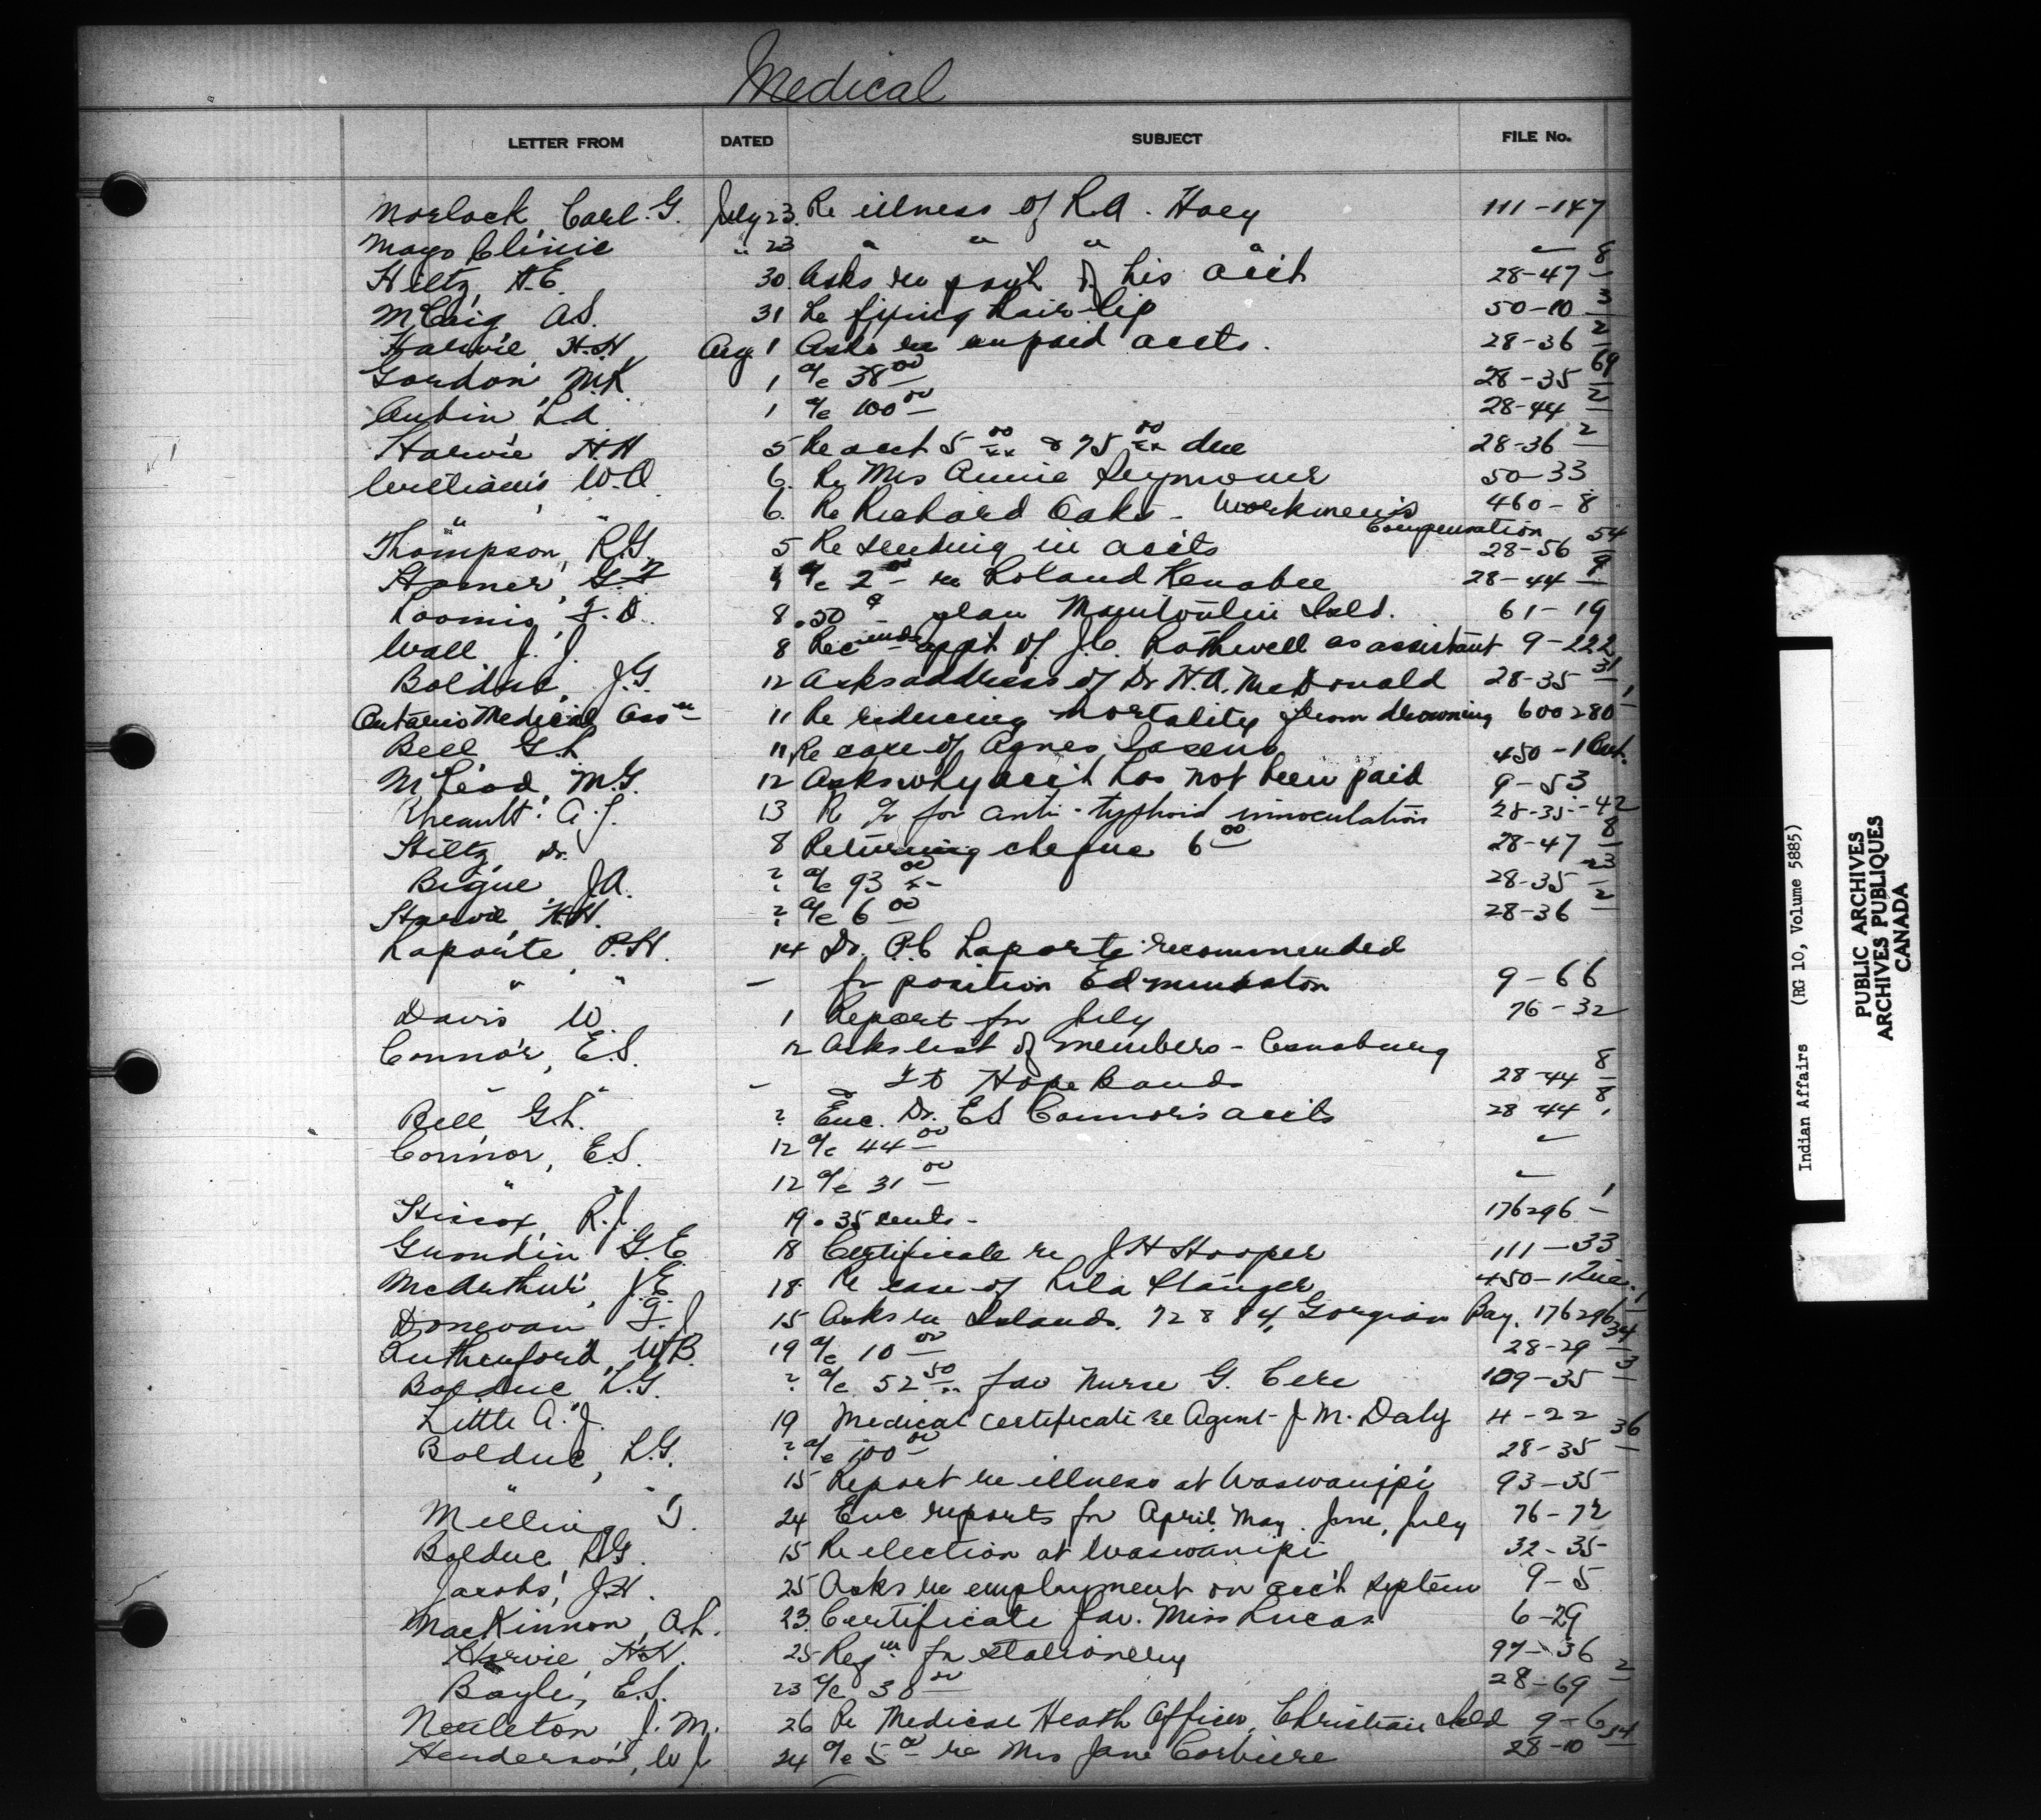 Medical
LETTER FROM DATED SUBJECT FILE No.
Morlock, Carl. G. July 23. Re illness of R.A. Hoey 111-147
Mayo Clinic " 23 " " " "
Hiltz, A.E. 30. Asks re paym't of his acc't 28-47 8
McCaig, A.S. 31 Re fixing hair-lip 50-10 3
Harvie, H.H. Aug. 1 Asks re unpaid accts. 28-36 2
Gordon, M.K. 1 a/c 38 00 28-35 69
Aubin, L.A. 1 a/c 100 00 28-44 2
Harvie, H.H 5 Re acct 5 00 & 75 00 due 28-36 2
Williams W.A. 6. Re Mrs Annie Seymour 50-33
" " 6. Re Richard Oake - Workmen's Compensation 460-8
Thompson, R.G. 5 Re sending in acc'ts 28-56 54
a/c 2 00 re Roland Kenabee 28-44 9
Loomis, F.D. 8 .50 ¢ plan Manitoulin Isld. 61-19
Wall J.J. 8 Recmends appt. of J.C. Rothwell as assistant 9-222
Bolduc, J.G. 12 Asks address of Dr H.A. McDonald 28-35 31
Ontario Medical Assn 11 Re reducing mortality from drowning 600280 1
Bell, G.L. 11 Re case of Agnes 450-1 Ont.
McLeod, M.G. 12 Asks why acc't has not been paid 9-53
Rheault, A.J. 13 Re a/c for anti-typhoid innoculation 28-35-42
Hiltz, Dr. 8 Returning cheque 6 00 28-47 8
Bigue, J.A. ? a/c 93 00 28-35 23
Harvie, H.H. ? a/c 6 00 28-36 2
Laporte, P.H. 14 Dr. P.C. Laporte recommended
" " - for position Edmundston 9-66
Davis W. 1 Report for July 76-32
Connor, E.S. 12 Asks list of members - Osnaburg
" " - & Ft Hope Bands 28-44 8
Bell, G.L. ? Enc. Dr. E.S. Connor's acc'ts 28-44 8
Connor, E.S. 12 a/c 44 00 "
" " 12 a/c 31 00 "
Hiscox, R.J. 19. 35 cents - 176296 1
Gumdin G.E. 18 Certificate re J.H Hooper 111-33
McArthur, J.E. 18. Re case of Lila Stanger 450-1 Que.
Donevan F.J. 15 Asks re Islands, 72 & 84, Gorgian Bay. 176296 1
Rutherford, W.B. 19 a/c 10 00 28-29 34
Bolduc L.G. ? a/c 52 50 fav Nurse G. Cere 109-35 3
Little A.J. 19 Medical certificate re Agent J.M. Daly 4-22
Bolduc, L.G. ? a/c 100 00 28-35 36
" " 15 Report re illness at Waswanipi 93-35
Melling T. 24 Enc reports for April, May, June, July 76-72
Bolduc L.G. 15 Re election at Waswanipi 32-35
Jacobs, J.H. 25 Asks re employment on acc't system 9-5
MacKinnon, A.L. 23. Certificate fav. Miss Lucas 6-29
Harvie H.H. 25 Reqn for stationery 97-36
E.S. 23 a/c 38 00 28-69 2
Nettleton J.M. 26 Re Medical Heath Officer, Christian Isld 9-6
Henderson, W J 24 a/c 5 00 re Mrs Jane Corbiere 28-10 54
Indian Affairs (RG 10, Volume 5885)
PUBLIC ARCHIVES
ARCHIVES PUBLIQUES
CANADA